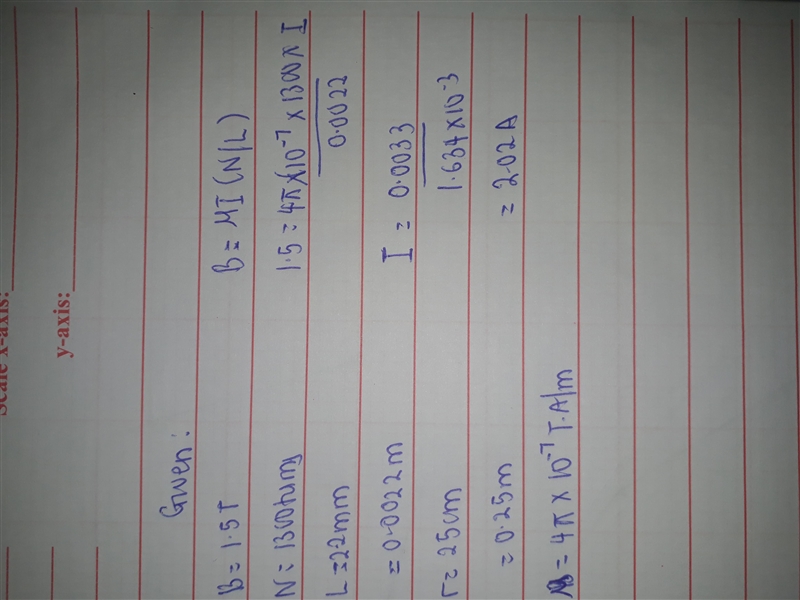 Scale x-axis:
y-axis:
Given:
B = 1.5T
N = 1300turns
L = 2.2mm
= 0.0022m
r = 25cm
= 0.25m
= 4π × 10⁻⁷ T.A/m
B = MI (N/L)
1.5 = 4π×10⁻⁷ × 1300 × I
0.0022
I = 0.0033
1.634×10⁻³
= 2.02A